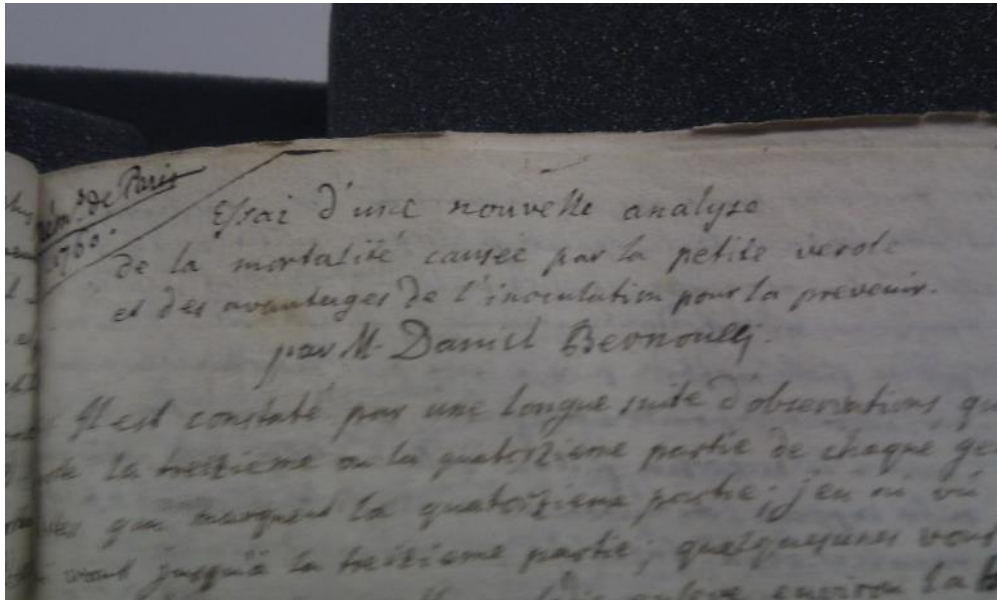 mém. de Paris
1760.
Essai d'une nouvelle analyse
de la mortalité causée par la petite verole
et des avantages de l'inoculation pour la prevenir.
par M. Daniel Bernoulli.
Il est constaté par une longue suite d'observations qu
de la treizieme ou la quatorzieme partie de chaque ge
que marquent la quatorzieme partie; j'en ai vû
vont jusqu'à la treizieme partie; quelquesunes vont
environ la